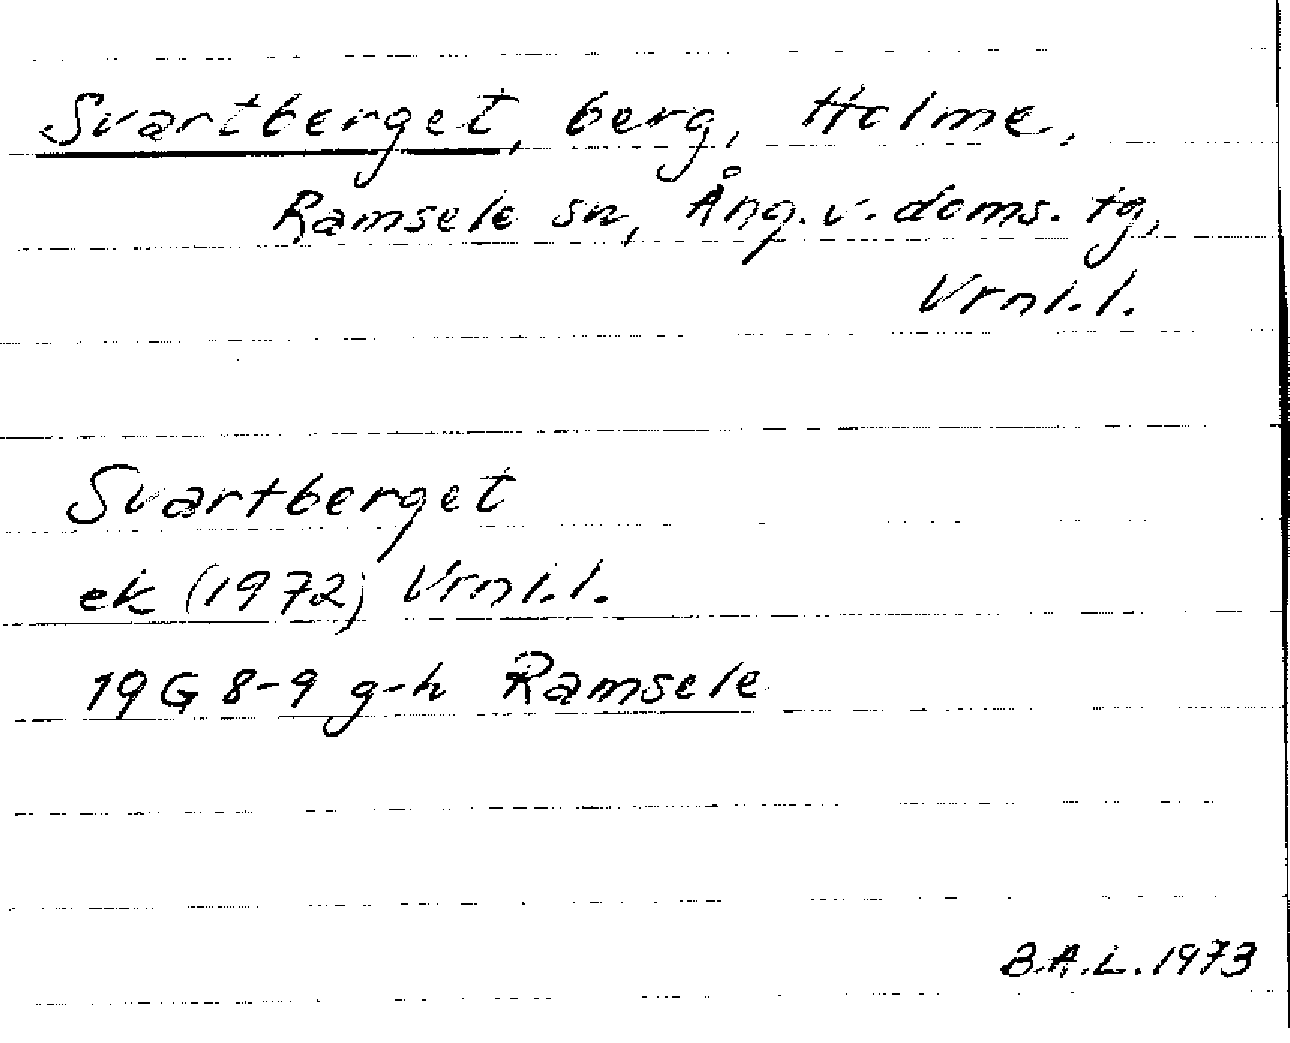 Svartberget, berg, Holme,
Ramsele sn, Ång. v. doms. tg,
Vrnl. l.
Svartberget
ek (1972) Vrnl. l.
19 G 8-9 g-h Ramsele
B.A.L. 1973